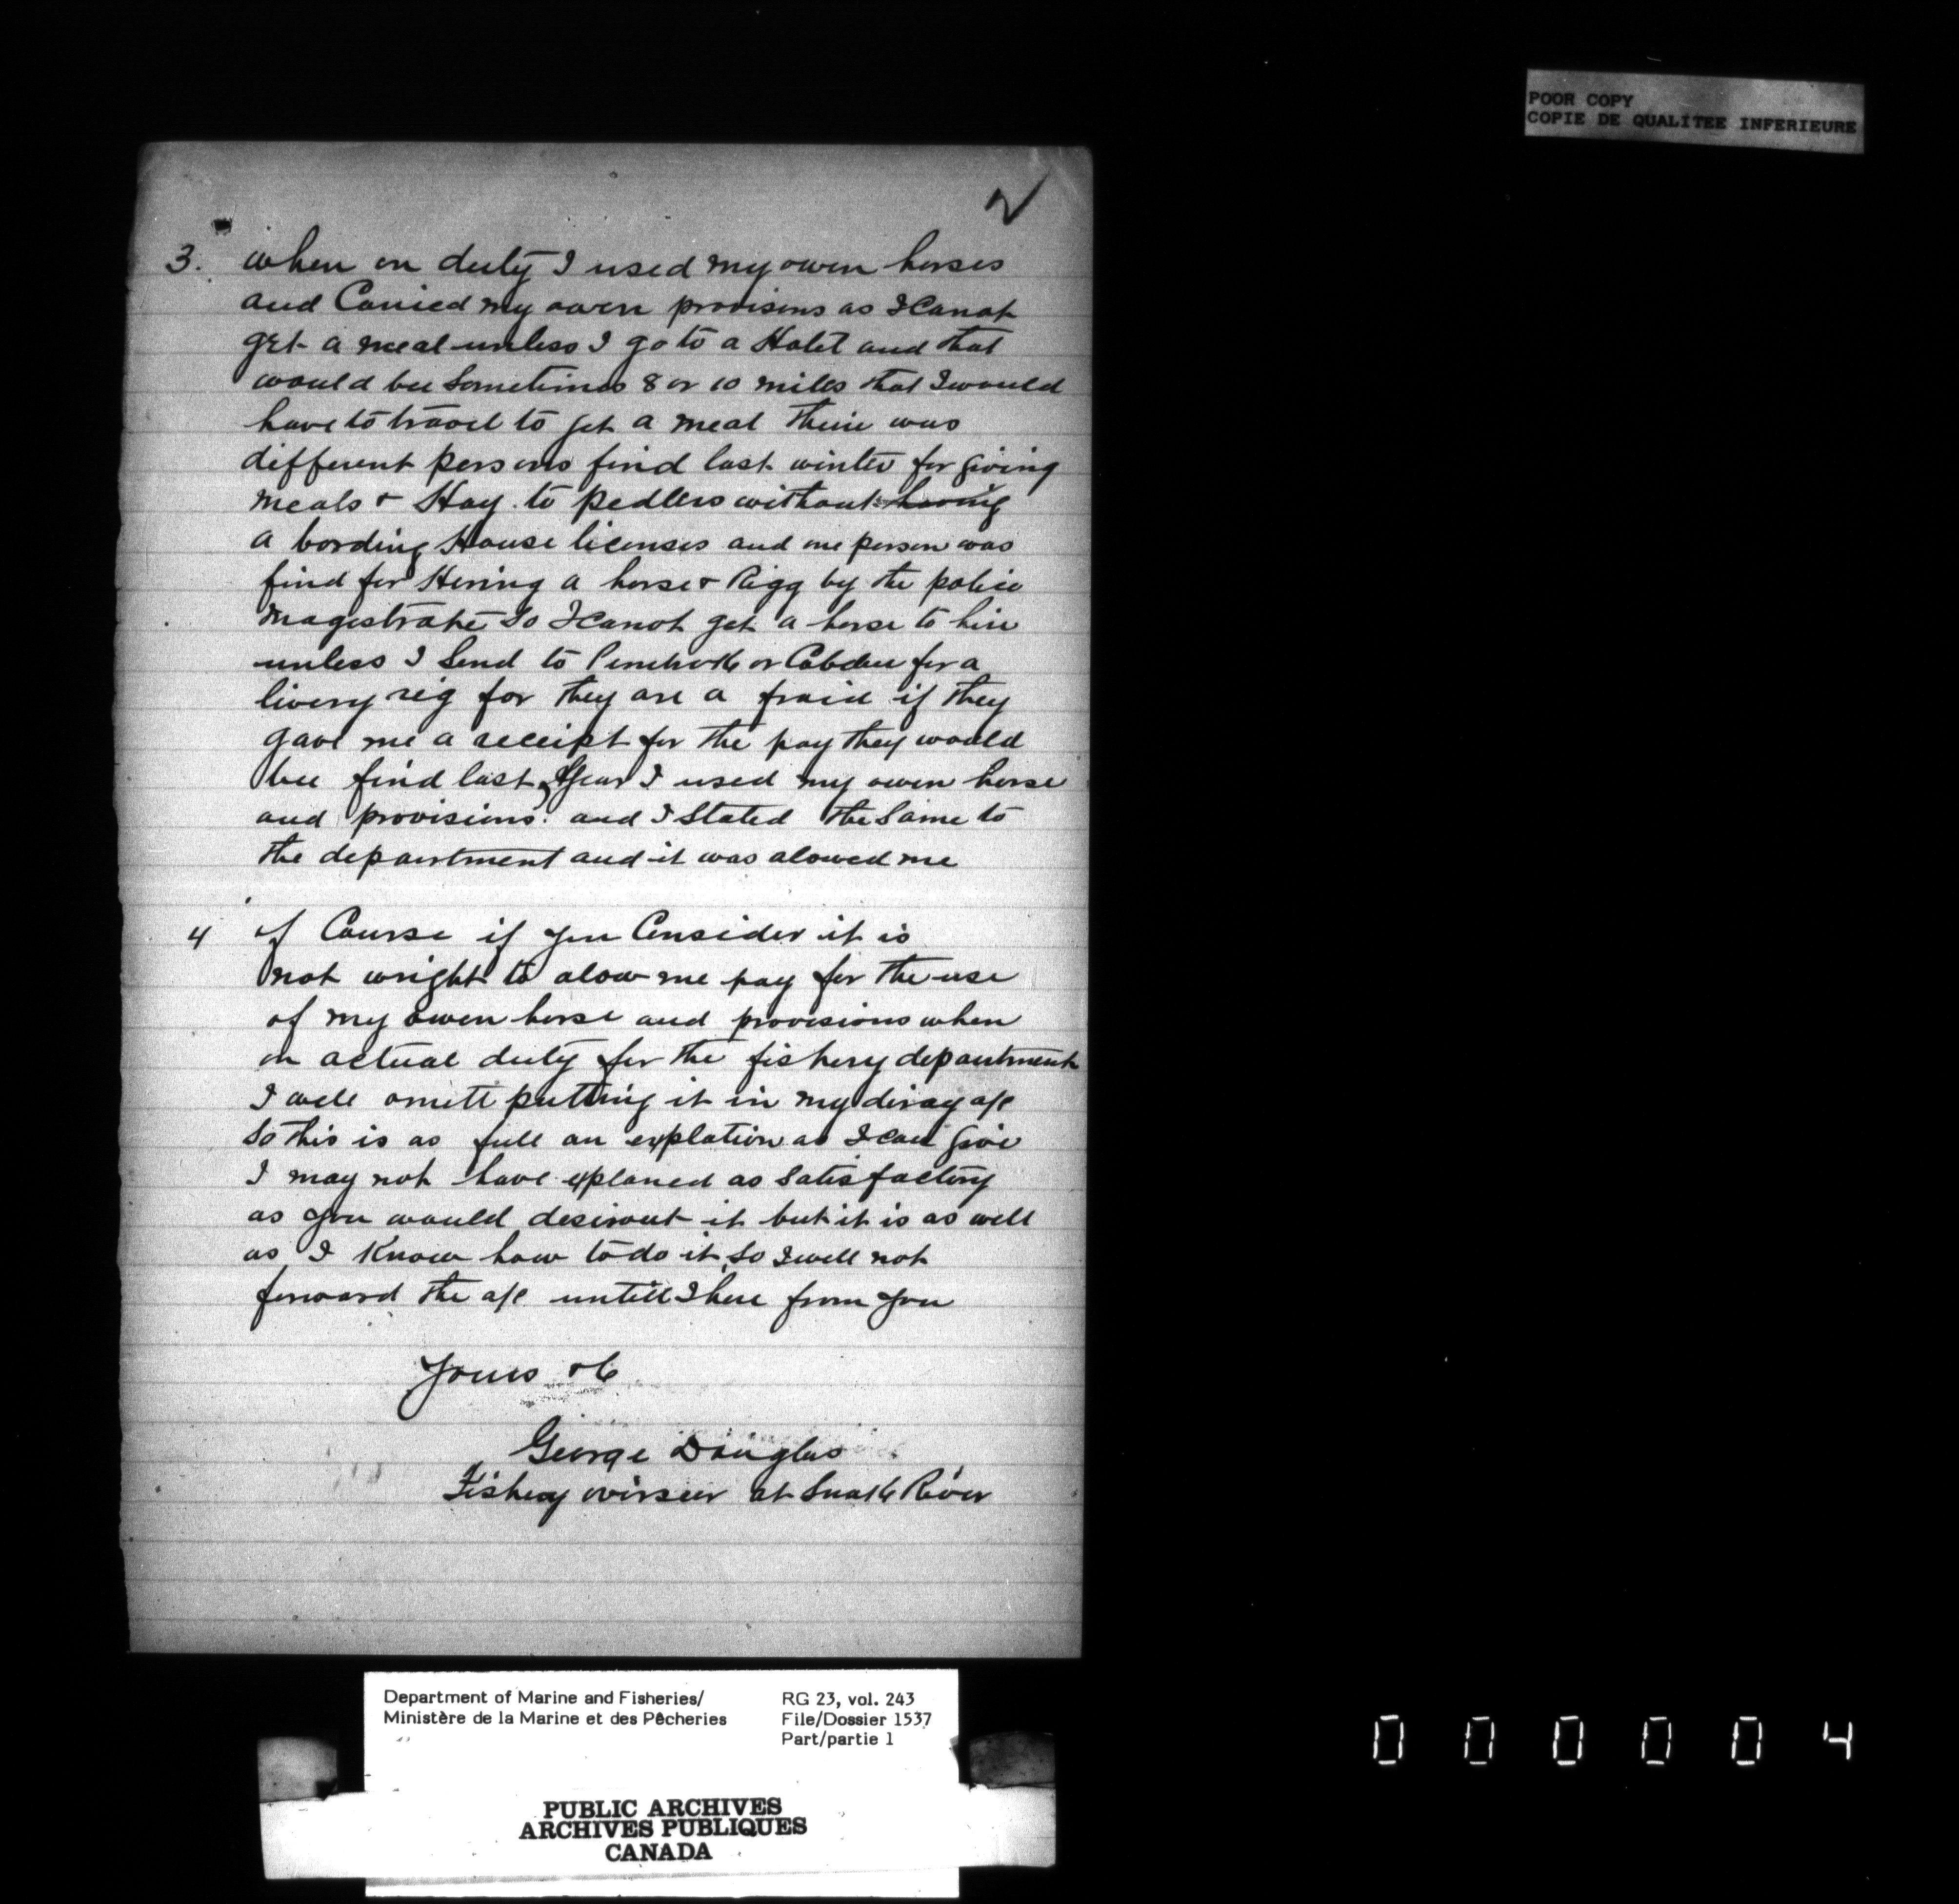 POOR COPY
COPIE DE QUALITEE INFERIEURE
2
3. when on duty I used my owen horses
and Carried my owen provisens as I Canot
get a meal unless I go to a Hotel and that
would bee Sometimes 8 or 10 miles that I would
have to travel to get a meal their was
different persons find last winter for giving
meals + Hay to pedlers without having
a bording House licenses and one person was
find for Hering a horse + Rigg by the police
magestrate So I canot get a horse to hire
unless I Send to Pembrok or Cobden for a
livery rig for they are a fraid if they
gave me a receipt for the pay they would
bee find last Year I used my owen horse
and provisions and I Stated the Same to
the department and it was alowed me
4 of Course if you Consider it is
not wright to alow me pay for the use
of my owen horse and provisions when
on actual duty for the fishery department
I well omitt putting it in my diray a/c
So this is as full an explation as I can give
I may not have explaned as Satisfactory
as you would desirout it but it is as well
as I Know how to do it So I well not
forward the a/c untill I here from you
Yours &c
George Douglas
Fishery overseer at Snake River
Department of Marine and Fisheries/
Ministère de la Marine et des Pêcheries
RG 23, vol. 243
File/Dossier 1537
Part/partie 1
PUBLIC ARCHIVES
ARCHIVES PUBLIQUES
CANADA
0 0 0 0 0 4